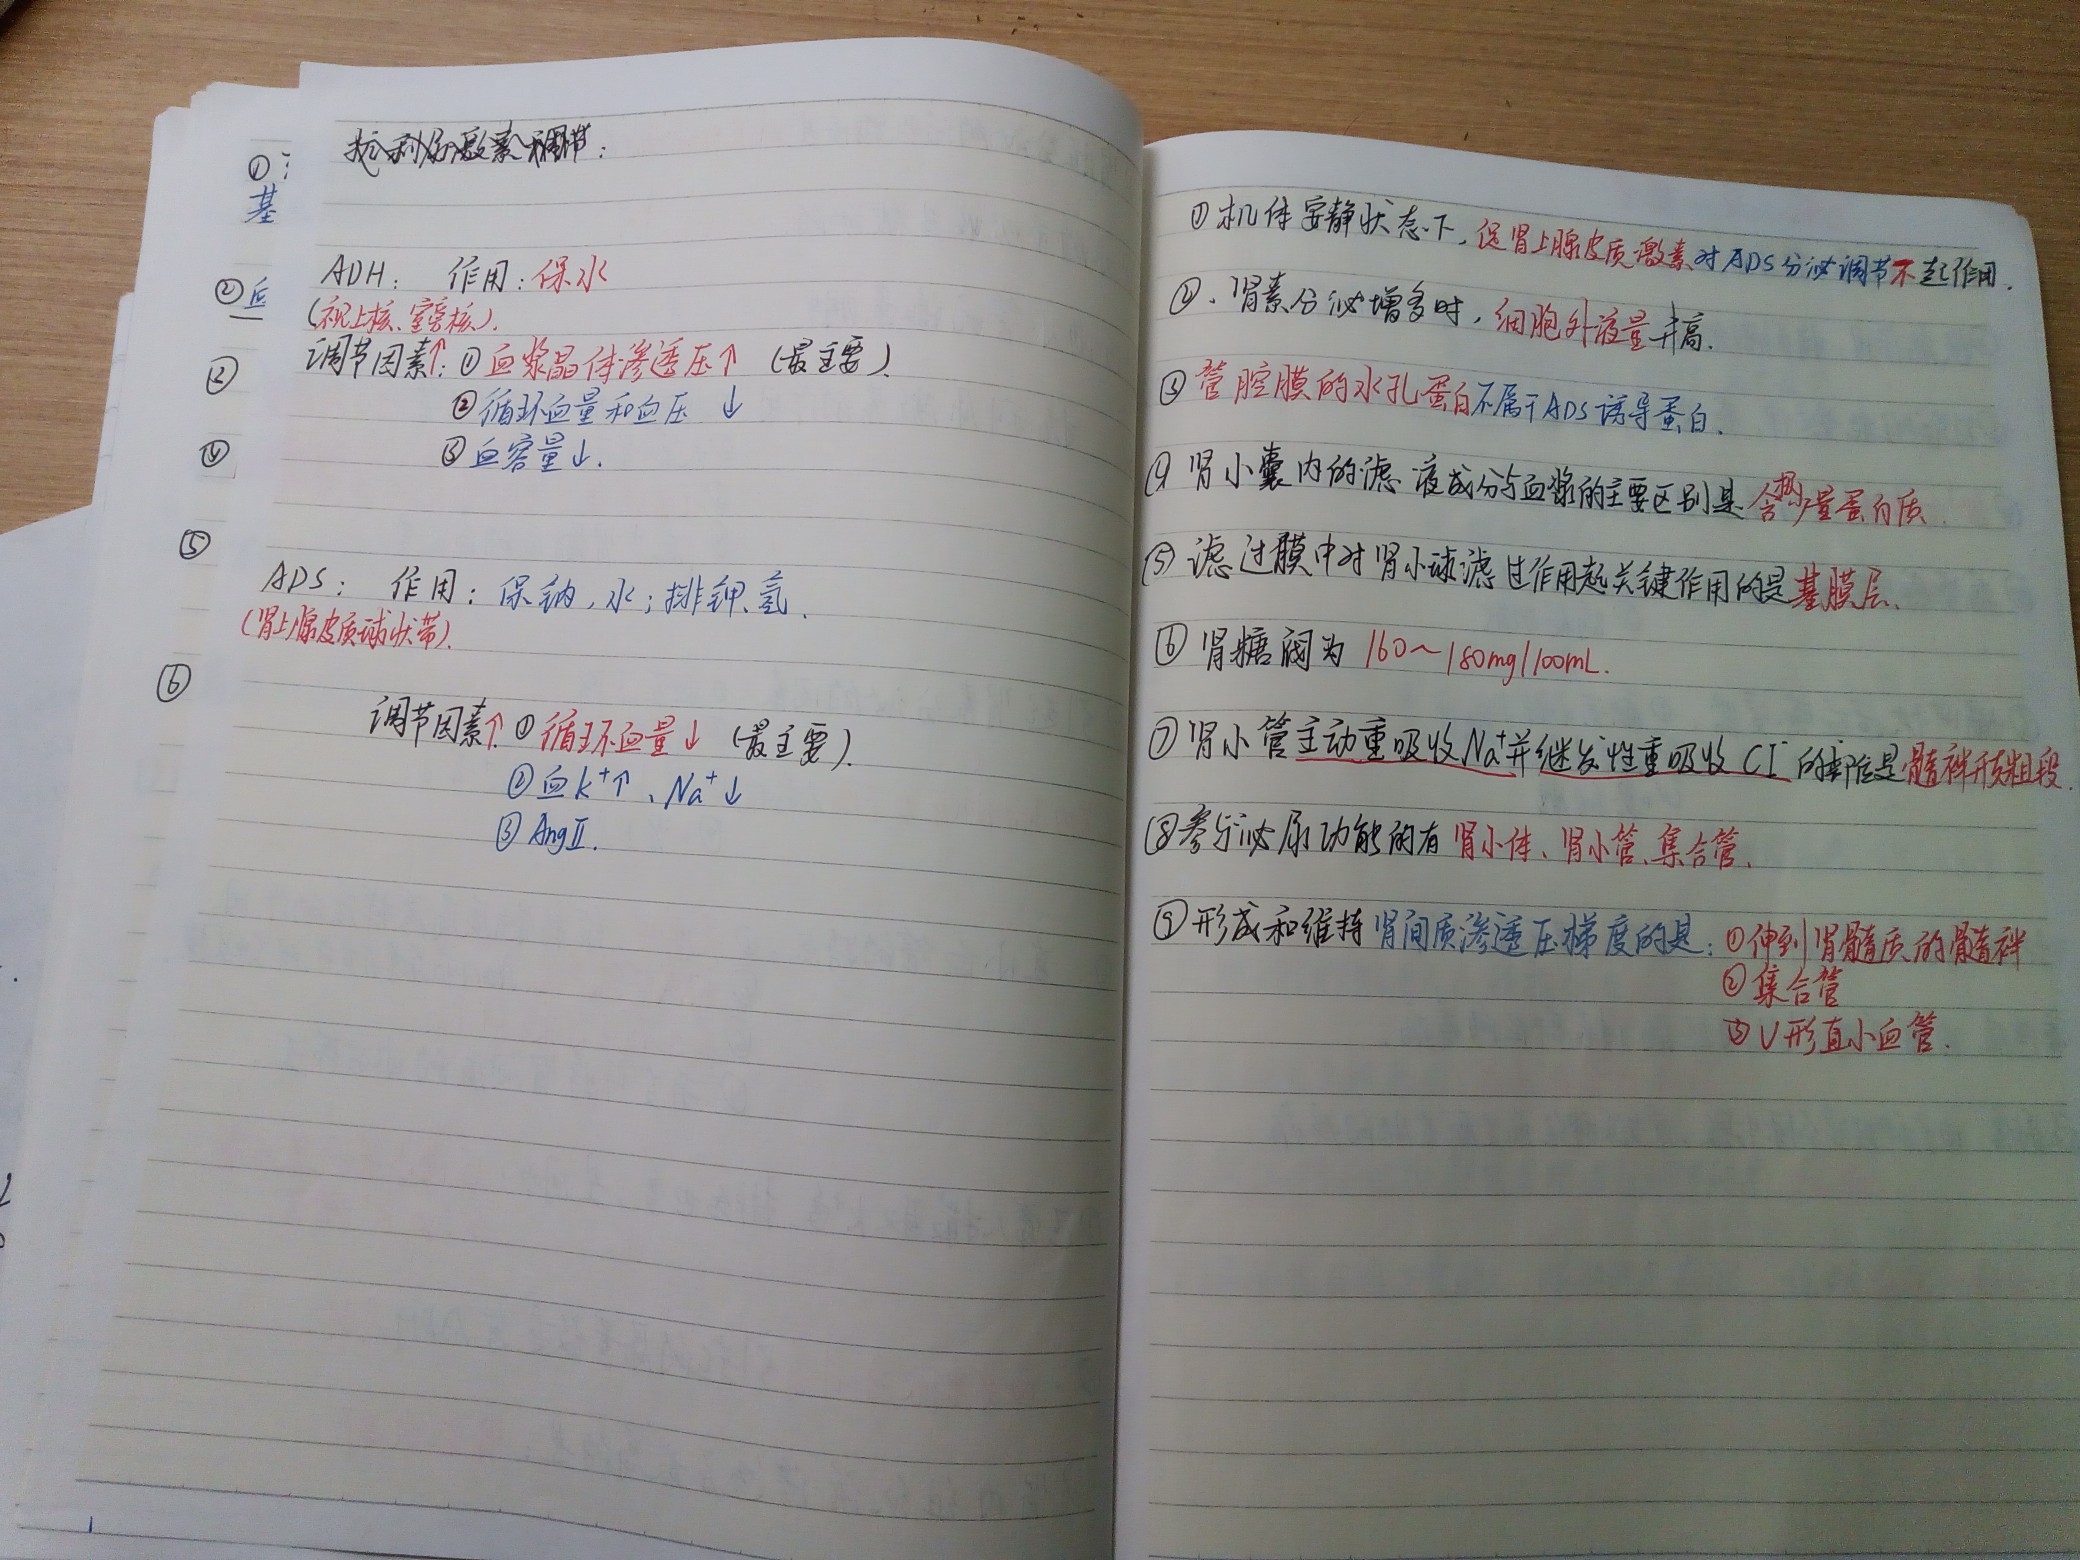 抗利尿激素调节：
ADH： 作用：保水
（视上核、室旁核）.
调节因素↑：①血浆晶体渗透压↑（最主要）.
②循环血量和血压↓
③血容量↓.
ADS： 作用：保钠，水；排钾、氢.
（肾上腺皮质球状带）.
调节因素↑：①循环血量↓（最主要）.
②血k⁺↑、Na⁺↓
③AngⅡ.
①
基
②
②
④
⑤
⑥
①机体安静状态下，促肾上腺皮质激素对ADS分泌调节不起作用.
②、肾素分泌增多时，细胞外液量升高.
③管腔膜的水孔蛋白不属于ADS诱导蛋白.
④肾小囊内的滤液成分与血浆的主要区别是含极少量蛋白质.
⑤滤过膜中对肾小球滤过作用起关键作用的是基膜层.
⑥肾糖阈为160～180mg/100mL.
⑦肾小管主动重吸收Na⁺并继发性重吸收Cl⁻的部位是髓袢升支粗段.
⑧参与泌尿功能的有肾小体、肾小管、集合管.
⑨形成和维持肾间质渗透压梯度的是：①伸到肾髓质的髓袢
②集合管
③U形直小血管.